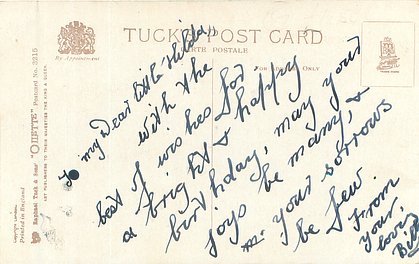 TUCK'S POST CARD
CARTE POSTALE
By Appointment
FOR ADDRESS ONLY
Raphael Tuck & Sons' "OILETTE" Postcard No. 3215
ART PUBLISHERS TO THEIR MAJESTIES THE KING & QUEEN
Printed in England
To my Dear little "Hilda"
with the
best of wishes for
a bright & happy
birthday, may your
joys be many, &
your sorrows
be few.
From
your
lovin
Bill